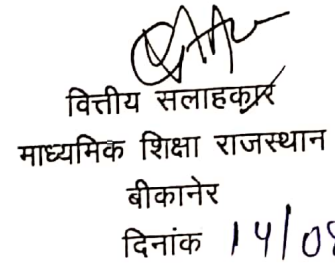 वित्तीय सलाहकार
माध्यमिक शिक्षा राजस्थान
बीकानेर
दिनांक 14/